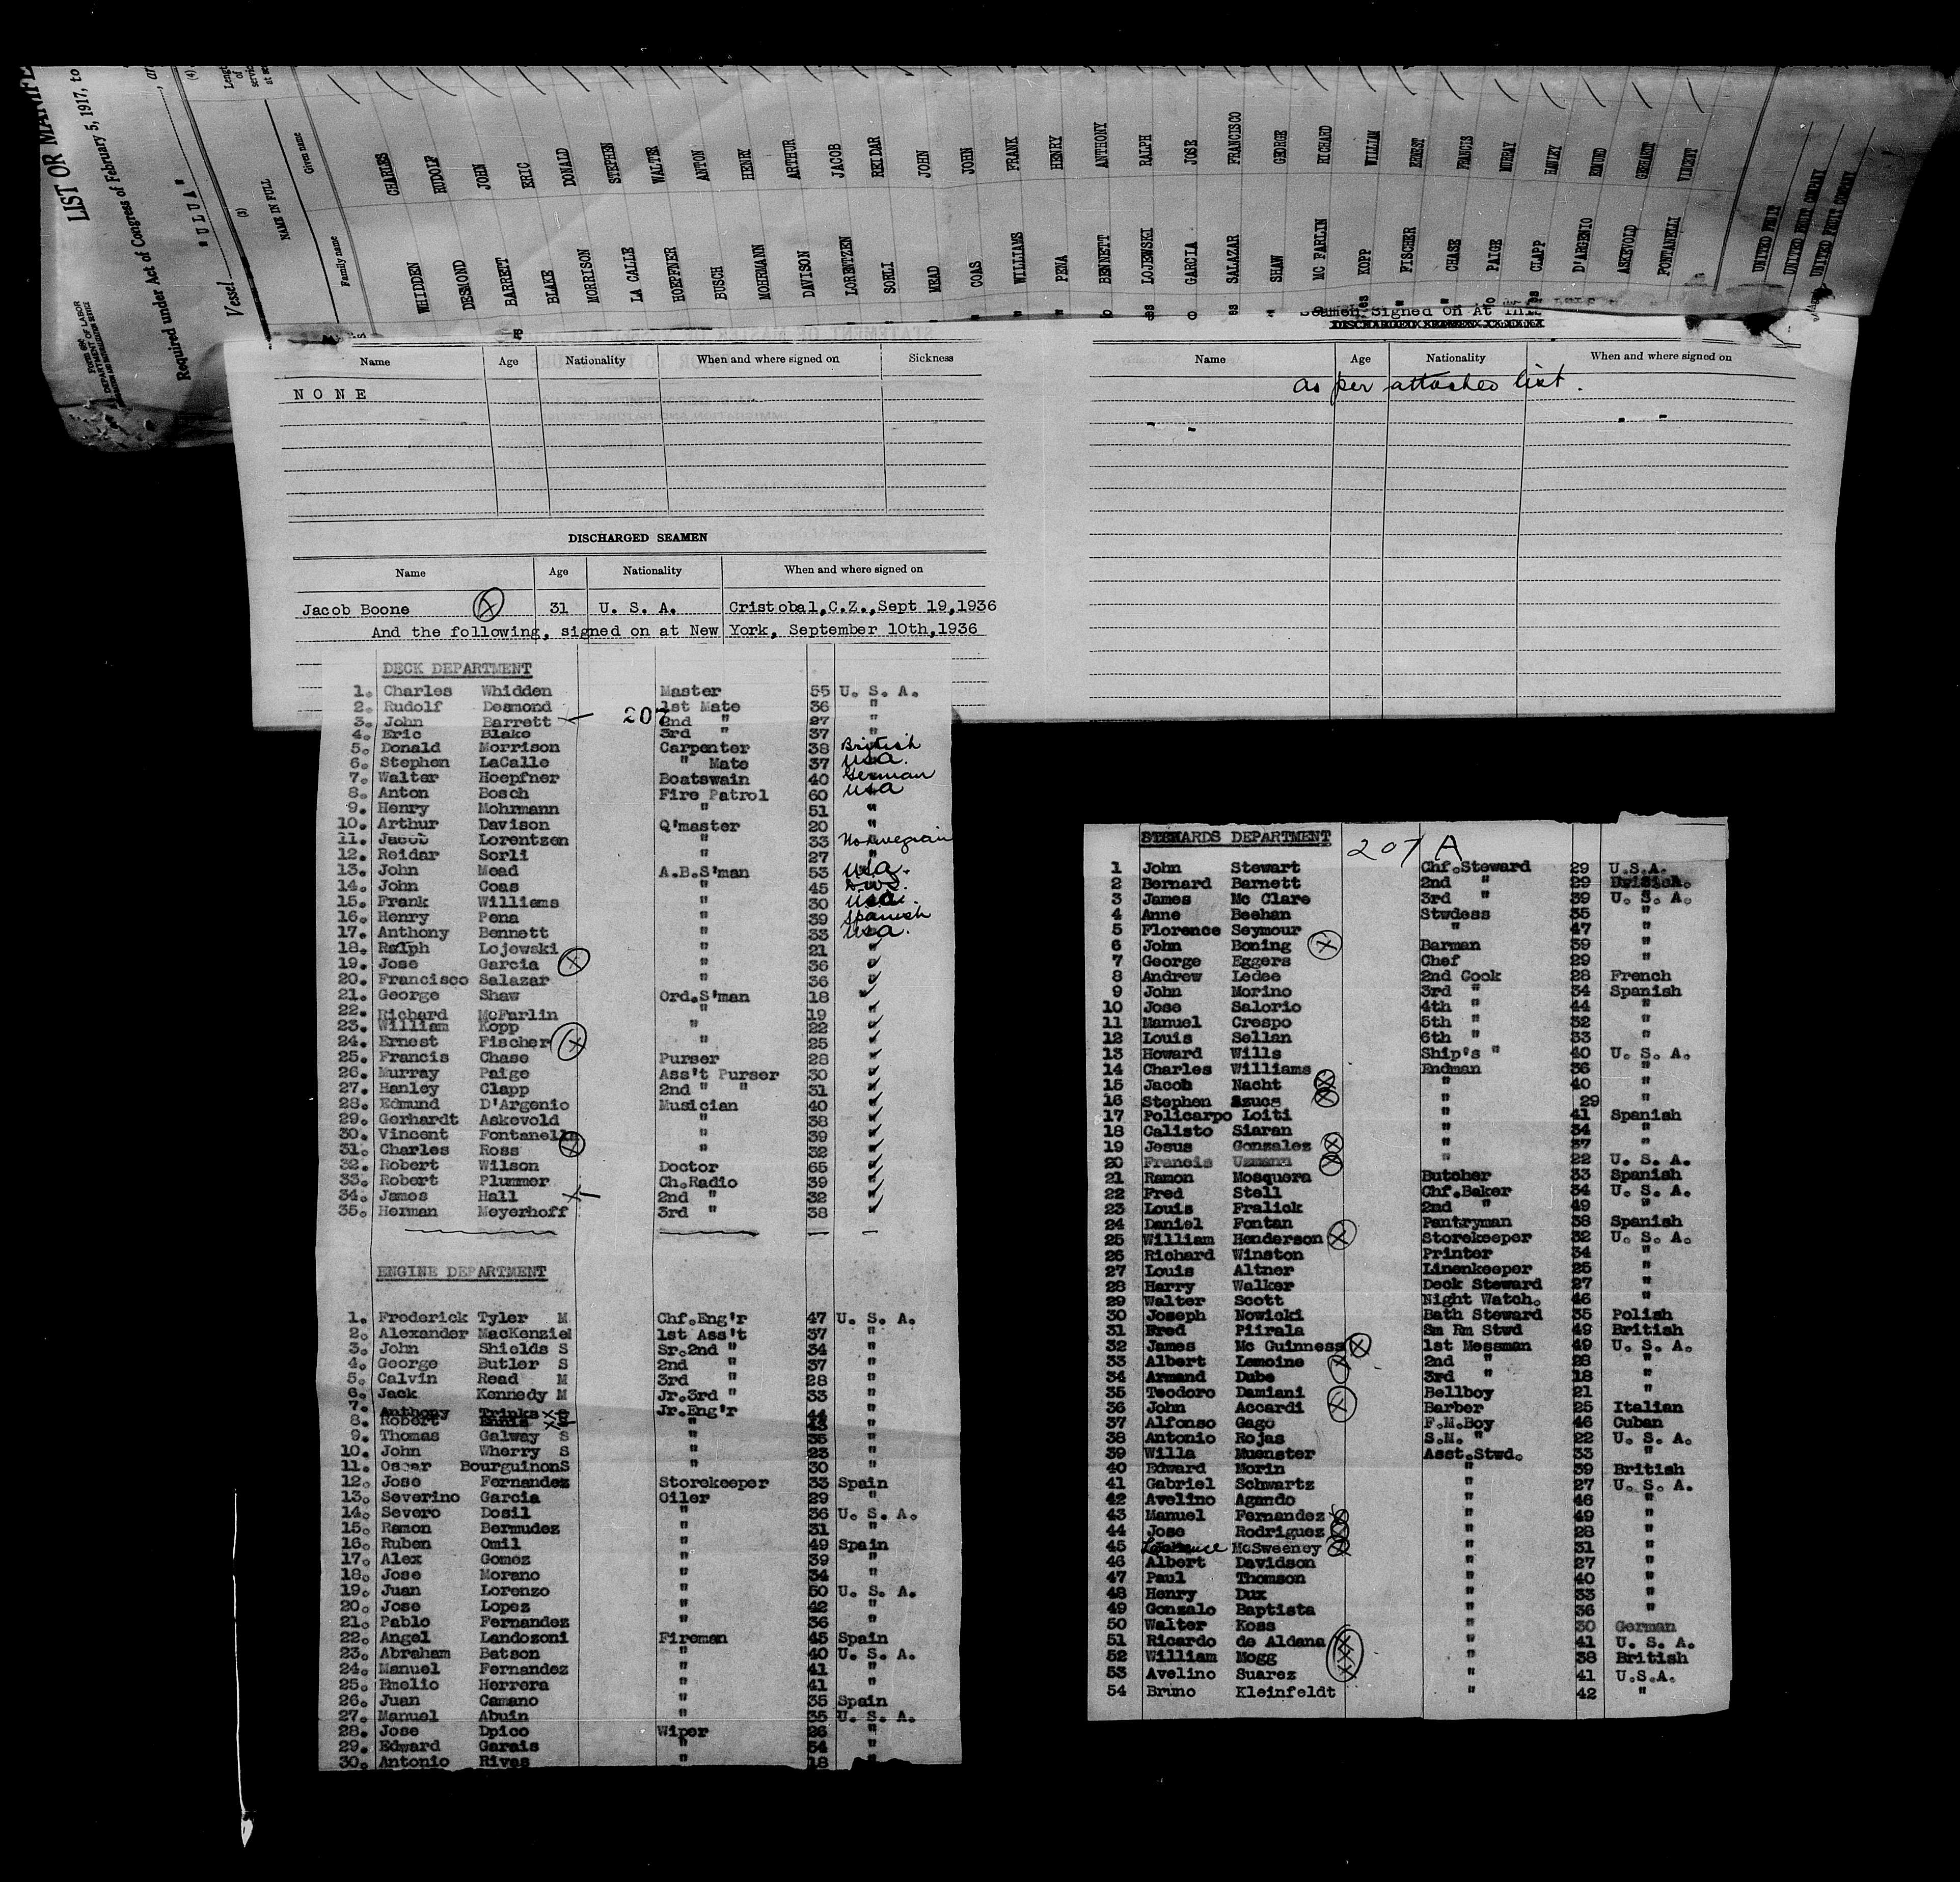 LIST OR MANIFE
Required under Act of Congress of February 5, 1917, to
Vessel "ULUA"
FORM 680
DEPARTMENT OF LABOR
(3)
NAME IN FULL
(4)
Family name Given name
WHIDDEN CHARLES
DESMOND RUDOLF
BARRETT JOHN
BLAKE ERIC
MORRISON DONALD
LA CALLE STEPHEN
HOEPFNER WALTER
BUSCH ANTON
MOHRMANN HENRY
DAVISON ARTHUR
LORENTZEN JACOB
SORLI REIDAR
MEAD JOHN
COAS JOHN
WILLIAMS FRANK
PENA HENRY
BENNETT ANTHONY
LOJEWSKI RALPH
GARCIA JOSE
SALAZAR FRANCISCO
SHAW GEORGE
MC FARLIN RICHARD
KOPP WILLIAM
FISCHER ERNEST
CHASE FRANCIS
PAIGE MURRAY
CLAPP HANLEY
D'ARGENIO EDMUND
ASKEVOLD GERHARDT
FONTANELLI VINCENT
UNITED FRUIT
UNITED FRUIT COMPANY
UNITED FRUIT COMPANY
Name Age Nationality When and where signed on Sickness
NONE
DISCHARGED SEAMEN
Name Age Nationality When and where signed on
Jacob Boone 31 U. S. A. Cristobal,C.Z.,Sept 19,1936
And the following, signed on at New York, September 10th,1936
Seamen Signed On At This
Name Age Nationality When and where signed on
as per attached list.
DECK DEPARTMENT
207
1. Charles Whidden Master 55 U. S. A.
2. Rudolf Desmond 1st Mate 36 "
3. John Barrett 2nd " 27 "
4. Eric Blake 3rd " 37 "
5. Donald Morrison Carpenter 38 British
6. Stephen LaCalle " Mate 37 USA.
7. Walter Hoepfner Boatswain 40 German
8. Anton Bosch Fire Patrol 60 USA
9. Henry Mohrmann " 51 "
10. Arthur Davison Q'master 20 "
11. Jacob Lorentzen " 33 Norwegian
12. Reidar Sorli " 27 "
13. John Mead A.B.S'man 53 USA.
14. John Coas " 45
15. Frank Williams " 30 USA.
16. Henry Pena " 39 Spanish
17. Anthony Bennett " 33 USA.
18. Ralph Lojewski " 21 "
19. Jose Garcia " 36 "
20. Francisco Salazar " 36 "
21. George Shaw Ord.S'man 18 "
22. Richard McFarlin " 19 "
23. William Kopp " 22 "
24. Ernest Fischer " 25 "
25. Francis Chase Purser 28 "
26. Murray Paige Ass't Purser 30 "
27. Hanley Clapp 2nd " " 31 "
28. Edmund D'Argenio Musician 40 "
29. Gerhardt Askevold " 38 "
30. Vincent Fontanella " 39 "
31. Charles Ross " 32 "
32. Robert Wilson Doctor 65 "
33. Robert Plummer Ch.Radio 39 "
34. James Hall 2nd " 32 "
35. Herman Meyerhoff 3rd " 38 "
ENGINE DEPARTMENT
1. Frederick Tyler M Chf.Eng'r 47 U. S. A.
2. Alexander MacKenzie M 1st Ass't 37 "
3. John Shields S Sr.2nd " 34 "
4. George Butler S 2nd " 37 "
5. Calvin Read M 3rd " 28 "
6. Jack Kennedy M Jr.3rd " 33 "
7. Anthony Trinks Jr.Eng'r 44 "
8. Robert Ennis " "
9. Thomas Galway S " 35 "
10. John Wherry S " 23 "
11. Oscar Bourguinon S " 30 "
12. Jose Fernandez Storekeeper 33 Spain
13. Severino Garcia Oiler 29 "
14. Severo Dosil " 36 U. S. A.
15. Ramon Bermudez " 31 "
16. Ruben Omil " 49 Spain
17. Alex Gomez " 39 "
18. Jose Morano " 34 "
19. Juan Lorenzo " 50 U. S. A.
20. Jose Lopez " 42 "
21. Pablo Fernandez " 36 "
22. Angel Landozoni Fireman 45 Spain
23. Abraham Batson " 40 U. S. A.
24. Manuel Fernandez " 41 "
25. Emelio Herrera " 41 "
26. Juan Camano " 35 Spain
27. Manuel Abuin " 35 U. S. A.
28. Jose Dpico Wiper 26 "
29. Edward Garais " 54 "
30. Antonio Rivas " 18 "
STEWARDS DEPARTMENT
207 A
1 John Stewart Chf.Steward 29 U.S.A.
2 Bernard Barnett 2nd " 29 British.
3 James Mc Clare 3rd " 39 U. S. A.
4 Anne Beehan Stwdess 35 "
5 Florence Seymour " 47 "
6 John Boning Barman 59 "
7 George Eggers Chef 29 "
8 Andrew Ledee 2nd Cook 28 French
9 John Morino 3rd " 34 Spanish
10 Jose Salorio 4th " 44 "
11 Manuel Crespo 5th " 32 "
12 Louis Sellan 6th " 33 "
13 Howard Wills Ship's " 40 U. S. A.
14 Charles Williams Endman 36 "
15 Jacob Nacht " 40 "
16 Stephen Szucs " 29 "
17 Policarpo Loiti " 41 Spanish
18 Calisto Siaran " 34 "
19 Jesus Gonzalez " 37 "
20 Francis Usmann " 22 U. S. A.
21 Ramon Mosquera Butcher 33 Spanish
22 Fred Stell Chf.Baker 34 U. S. A.
23 Louis Fralick 2nd " 49 "
24 Daniel Fontan Pantryman 38 Spanish
25 William Henderson Storekeeper 32 U. S. A.
26 Richard Winston Printer 34 "
27 Louis Altner Linenkeeper 25 "
28 Harry Walker Deck Steward 27 "
29 Walter Scott Night Watch. 46 "
30 Joseph Nowicki Bath Steward 35 Polish
31 Fred Piirala Sm Rm Stwd 49 British
32 James Mc Guinness 1st Messman 49 U. S. A.
33 Albert Lemoine 2nd " 28 "
34 Armand Dube 3rd " 18 "
35 Teodoro Damiani Bellboy 21 "
36 John Accardi Barber 25 Italian
37 Alfonso Gago F.M.Boy 46 Cuban
38 Antonio Rojas S.M. " 22 U. S. A.
39 Willa Muenster Asst.Stwd. 33 "
40 Edward Morin " 39 British
41 Gabriel Schwartz " 27 U. S. A.
42 Avelino Agando " 46 "
43 Manuel Fernandez " 49 "
44 Jose Rodriguez " 28 "
45 McSweeney " 31 "
46 Albert Davidson " 27 "
47 Paul Thomson " 40 "
48 Henry Dux " 33 "
49 Gonzalo Baptista " 36 "
50 Walter Koss " 30 German
51 Ricardo de Aldana " 41 U. S. A.
52 William Mogg " 38 British
53 Avelino Suarez " 41 U.S.A.
54 Bruno Kleinfeldt " 42 "